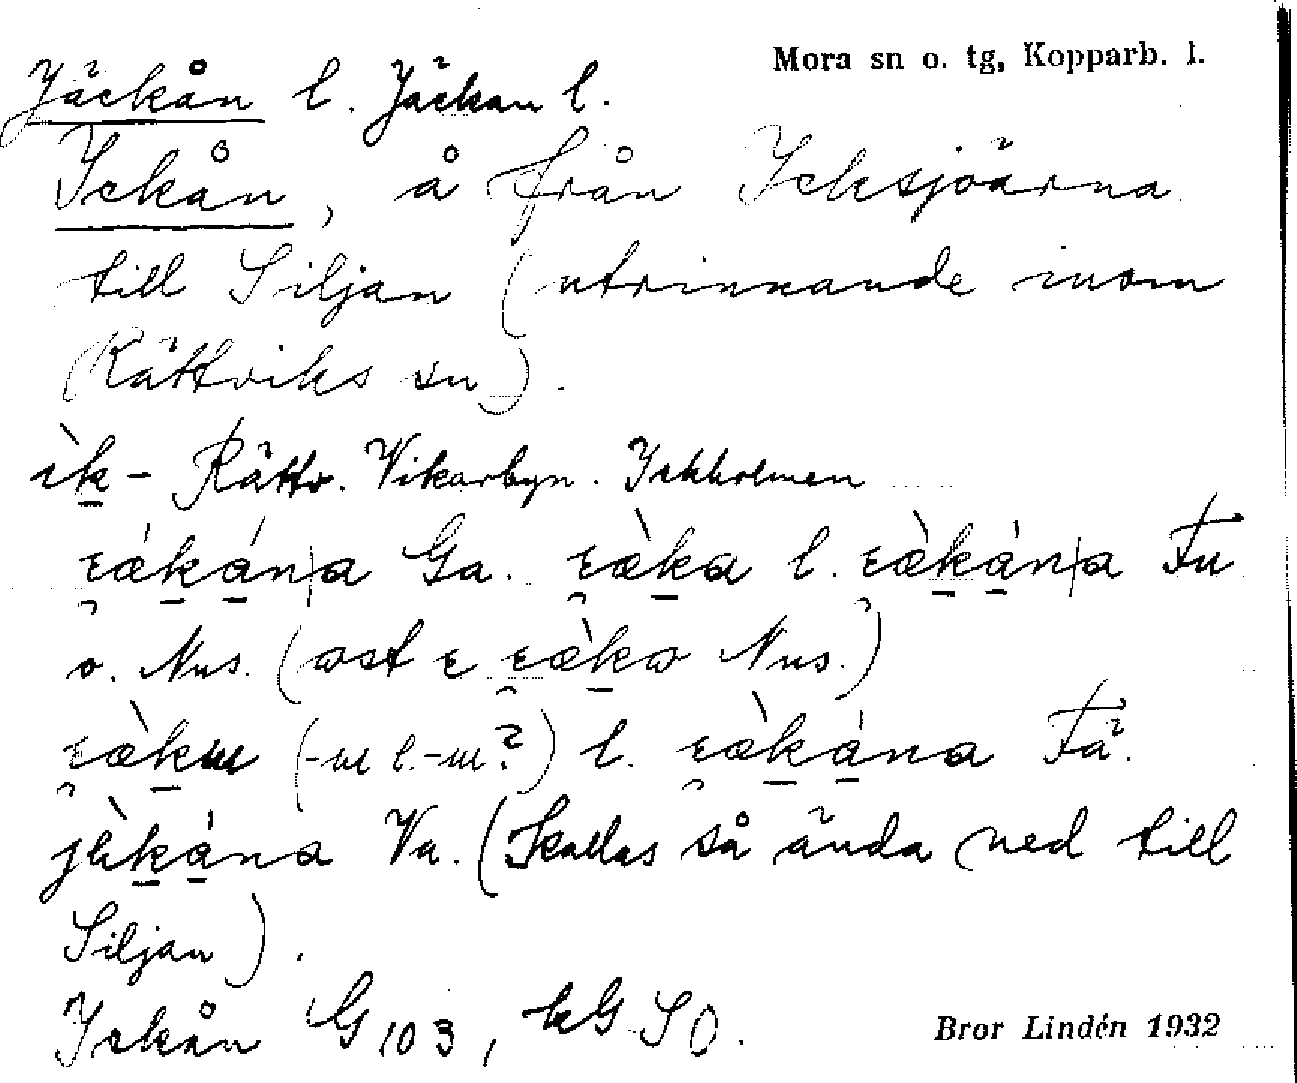 Mora sn o. tg, Kopparb. l.
Jäckån l. Jäckan l.
Ickån, å från Icksjöarna
till Siljan (utrinnande inom
Rättviks sn).
ìk- Rättv. Vikarbyn. Ickholmen
ɛækána Ga. ɛæ̀ka l. ɛæ̀kána Fu
o. Nus. (ost ɛ ɛæ̀ko Nus.)
l. ɛæ̀kána Fä.
kána Va. (Kallas så ända ned till
Siljan).
Ickån G 103, kG SO.
Bror Lindén 1932